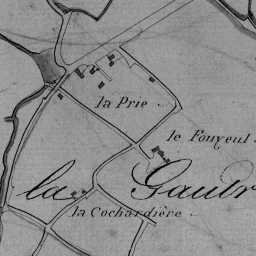 la Prie.
le Fouyeul.
la Gaudr
la Cochardière.